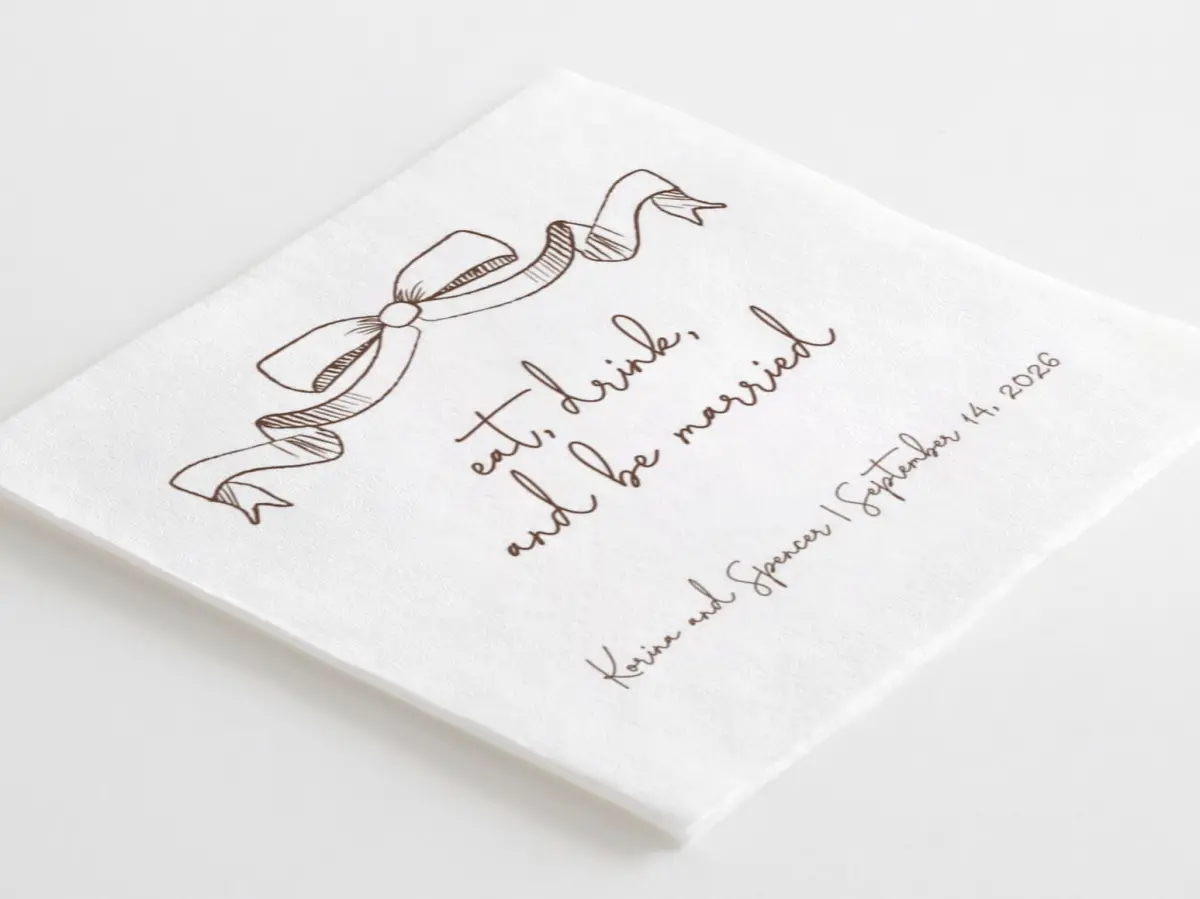 eat, drink,
and be married
Korina and Spencer | September 14, 2026